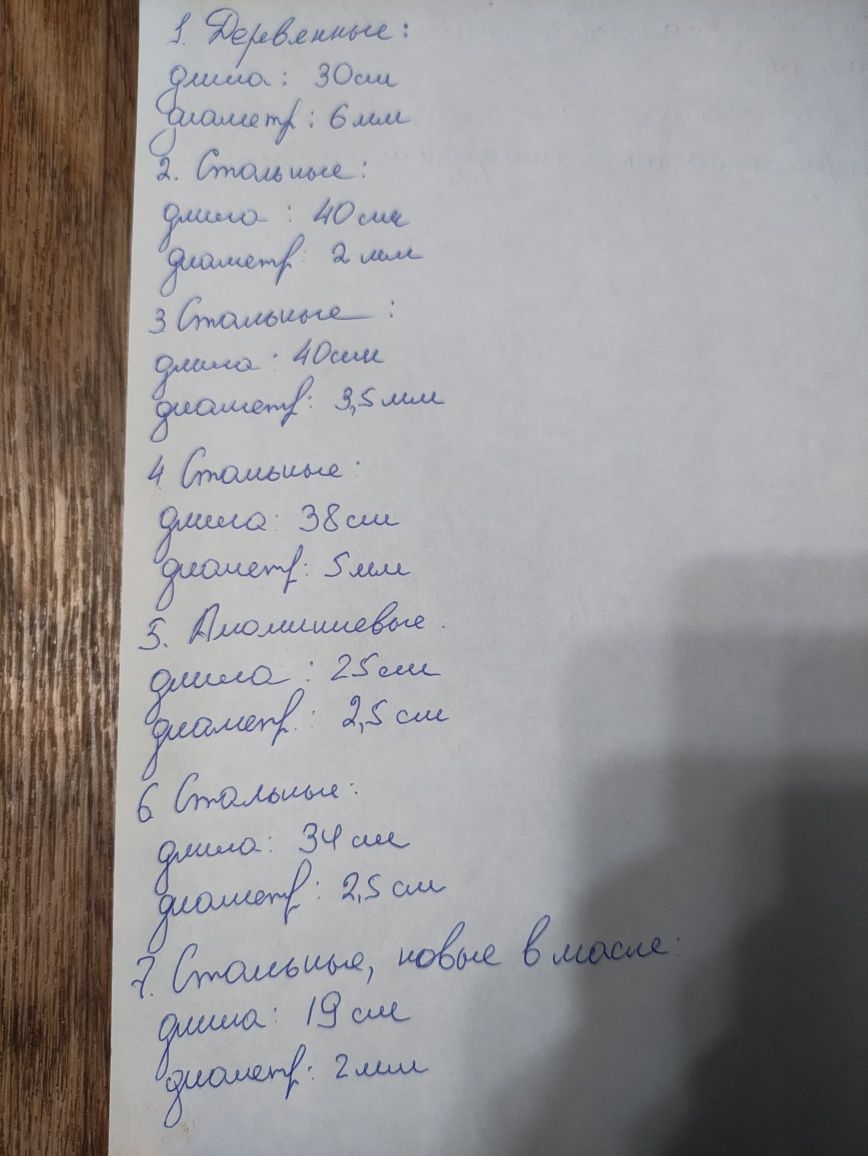 1. Деревянные:
длина: 30см
диаметр: 6мм
2. Стальные:
длина: 40см
диаметр: 2мм
3 Стальные:
длина: 40см
диаметр: 3,5мм
4. Стальные:
длина: 38см
диаметр: 5мм
5. Алюминиевые.
длина: 25см
диаметр: 2,5см
6 Стальные:
длина: 34см
диаметр: 2,5см
7. Стальные, новые в масле:
длина: 19см
диаметр: 2мм